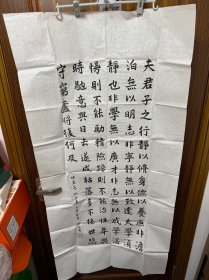 夫君子之行靜以脩身儉以養德非澹
泊無以明志非寧靜無以致遠夫學須
靜也非學無以廣才非志無以成學
則不能勵精險躁則不能治性年與
時馳意與日去遂成枯落多不接世悲
守窮廬將復何及